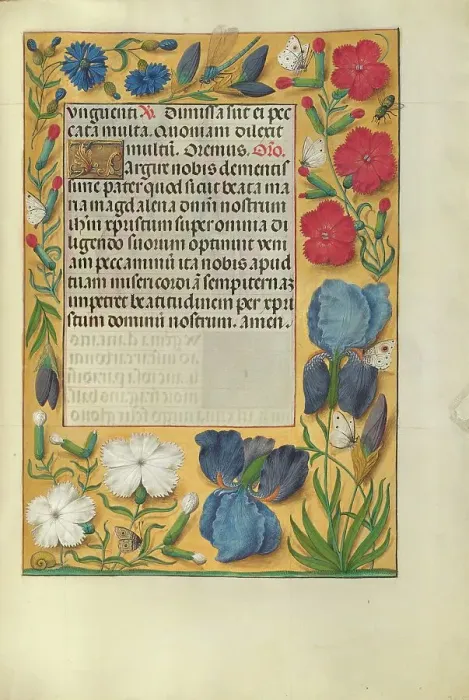 vnguenti. X. Dimissa sūt ei pec
cata multa. Quoniam dilexit
multū. Oremus. Orō.
Largire nobis clementis
sime pater quod sicut beata ma
ria magdalena dnm̄ nostrum
ihm̄ xpistum super omnia di
ligendo suorum optinuit veni
am peccaminū ita nobis apud
tuam misericordiā sempiternaz
impetret beatitudinem per xpi
stum dominū nostrum. amen.